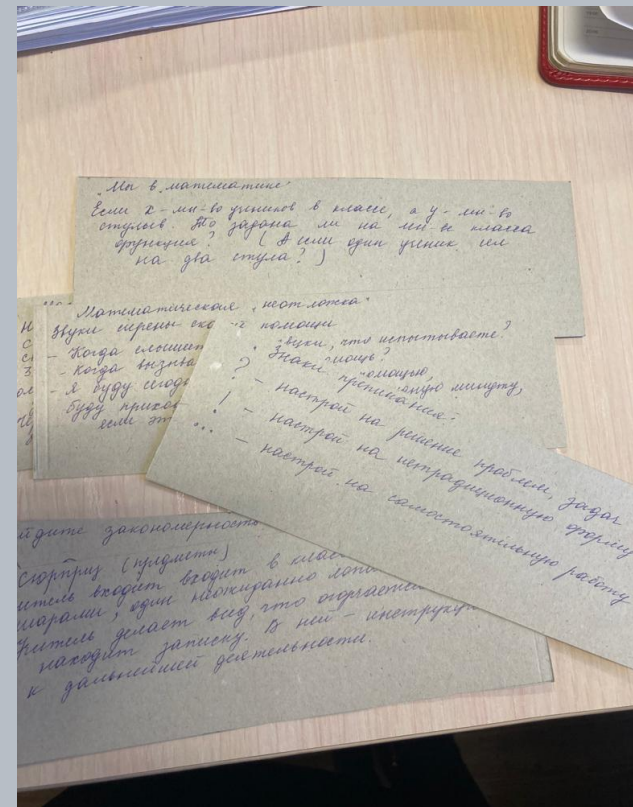 „Мы в математике"
Если x - мн-во учеников в классе, а y - мн-во
стульев. То задана ли на мн-ве класса
функция? (А если один ученик сел
на два стула?)
Математическая „неотложка"
Звуки сирены ской помощи
- Когда слышит звуки, что испытываете?
- Когда вызыва мощь?
- Я буду сегодн омощью,
буду приход ную минуту,
если эт
Знаки препинания:
? - настрой на решение проблем, задач
! - настрой на нетрадиционную форму
... - настрой на самостоятельную работу
йдите закономерность
Сюрприз (предметы)
читель входит входит в клас
шарами, один неожиданно лопа
Учитель делает вид, что огорчается
находит записку. В ней - инструкц
к дальнейшей деятельности.